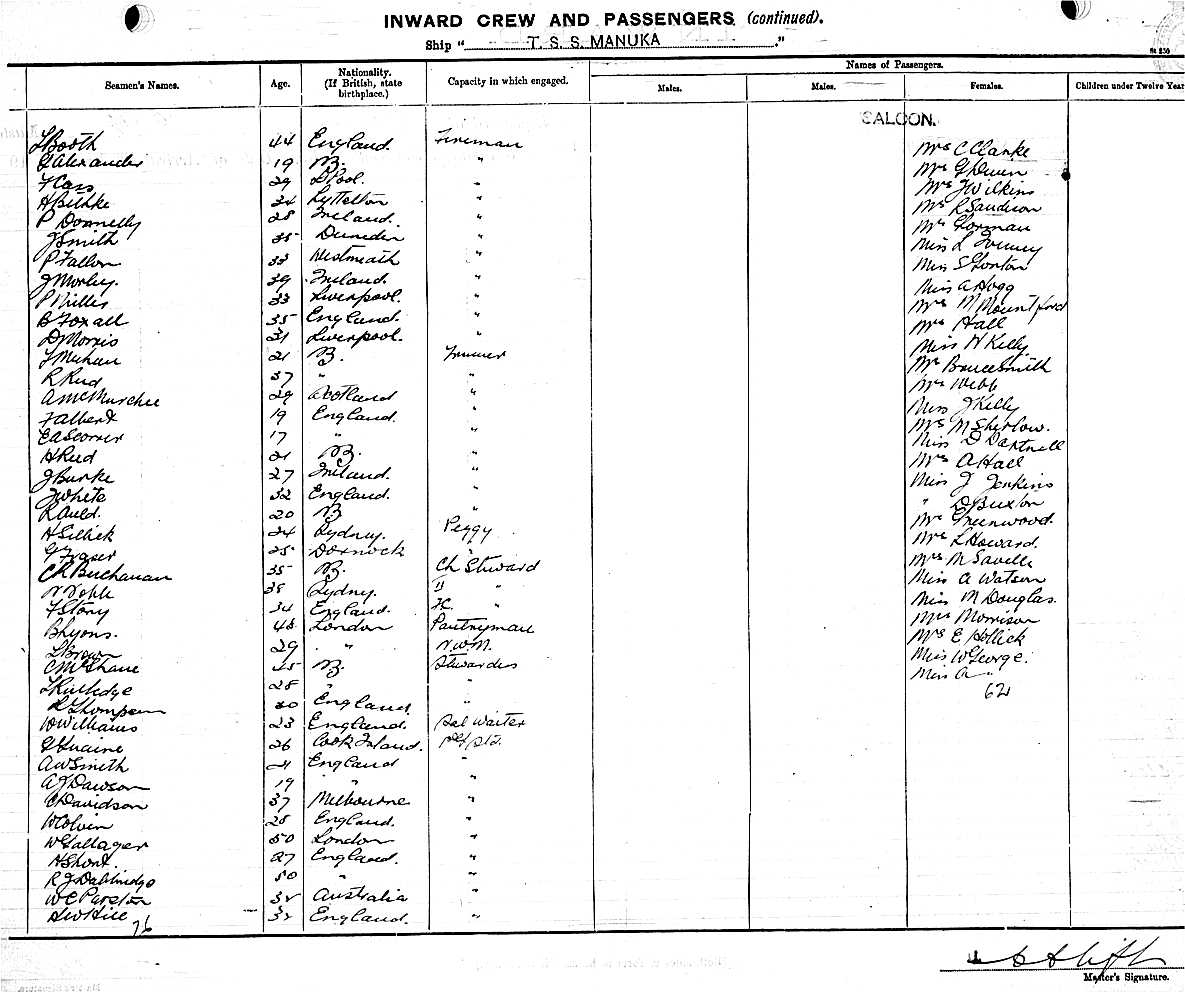 INWARD CREW AND PASSENGERS (continued).
Ship "T. S. S. MANUKA."
St 250
Seamen's Names. Age. Nationality. (If British, state birthplace.) Capacity in which engaged. Names of Passengers.
Males. Males. Females. Children under Twelve Year
SALOON.
Booth 44 England. Fireman Mrs C Clarke
G Alexander 19 "
F Cass 29 L'Pool. " Mrs J Wilkins
H Bithke 34 Lyttelton " Mrs R Sandison
P Donnelly 28 Ireland. " Mrs Gorman
J Smith 35 Dunedin " Miss L
P Fallon 33 Westmeath " Miss S Gorton
J Morley. 39 Ireland. " Miss A Hogg
P 33 Liverpool. " Mrs M Mountford
B Foxall 35 England. " Mrs Hall
D Morris 31 Liverpool. " Miss N Kelly
Meehan 21 Trimmer Mrs Brucesmith
R Reid 37 " " Mrs Webb
A McMurchee 29 Scotland " Miss J Kelly
F Albert 19 England. " Mrs M Shirlow.
E A Scorrer 17 " " Miss D Dartnell
H Reid 21 " Mrs A Hall
J Burke 27 Ireland. " Miss J Jenkins
J White 32 England. " " D Buxton
R Auld. 20 " Mrs Greenwood.
H Sillick 24 Sydney. Peggy Mrs L Howard.
G Fraser 25 Dornock " Mrs M Savelle
C R Buchanan 35 Ch Steward Miss A Watson
N Noble 38 Sydney. II " Miss M Douglas.
F Story 34 England. " Mrs Morrison
B Lyons. 48 London Pantryman Mrs E Hollick
L Brown 29 " N.W.M. Miss W George.
C McShane Stewardess Miss A "
L Rutledge 28 " " 62
R Thompson 30 England "
W Williams 23 England. Sal Waiter
G Guaine 26 Cook Island.
A W Smith 21 England "
A J Dawson 19 " "
C Davidson 37 Melbourne "
W Colvin 28 England. "
W Gallager 50 London "
H Short. 27 England. "
R J 50 " "
W C Purston Australia "
H W Hill England. "
76
Master's Signature.